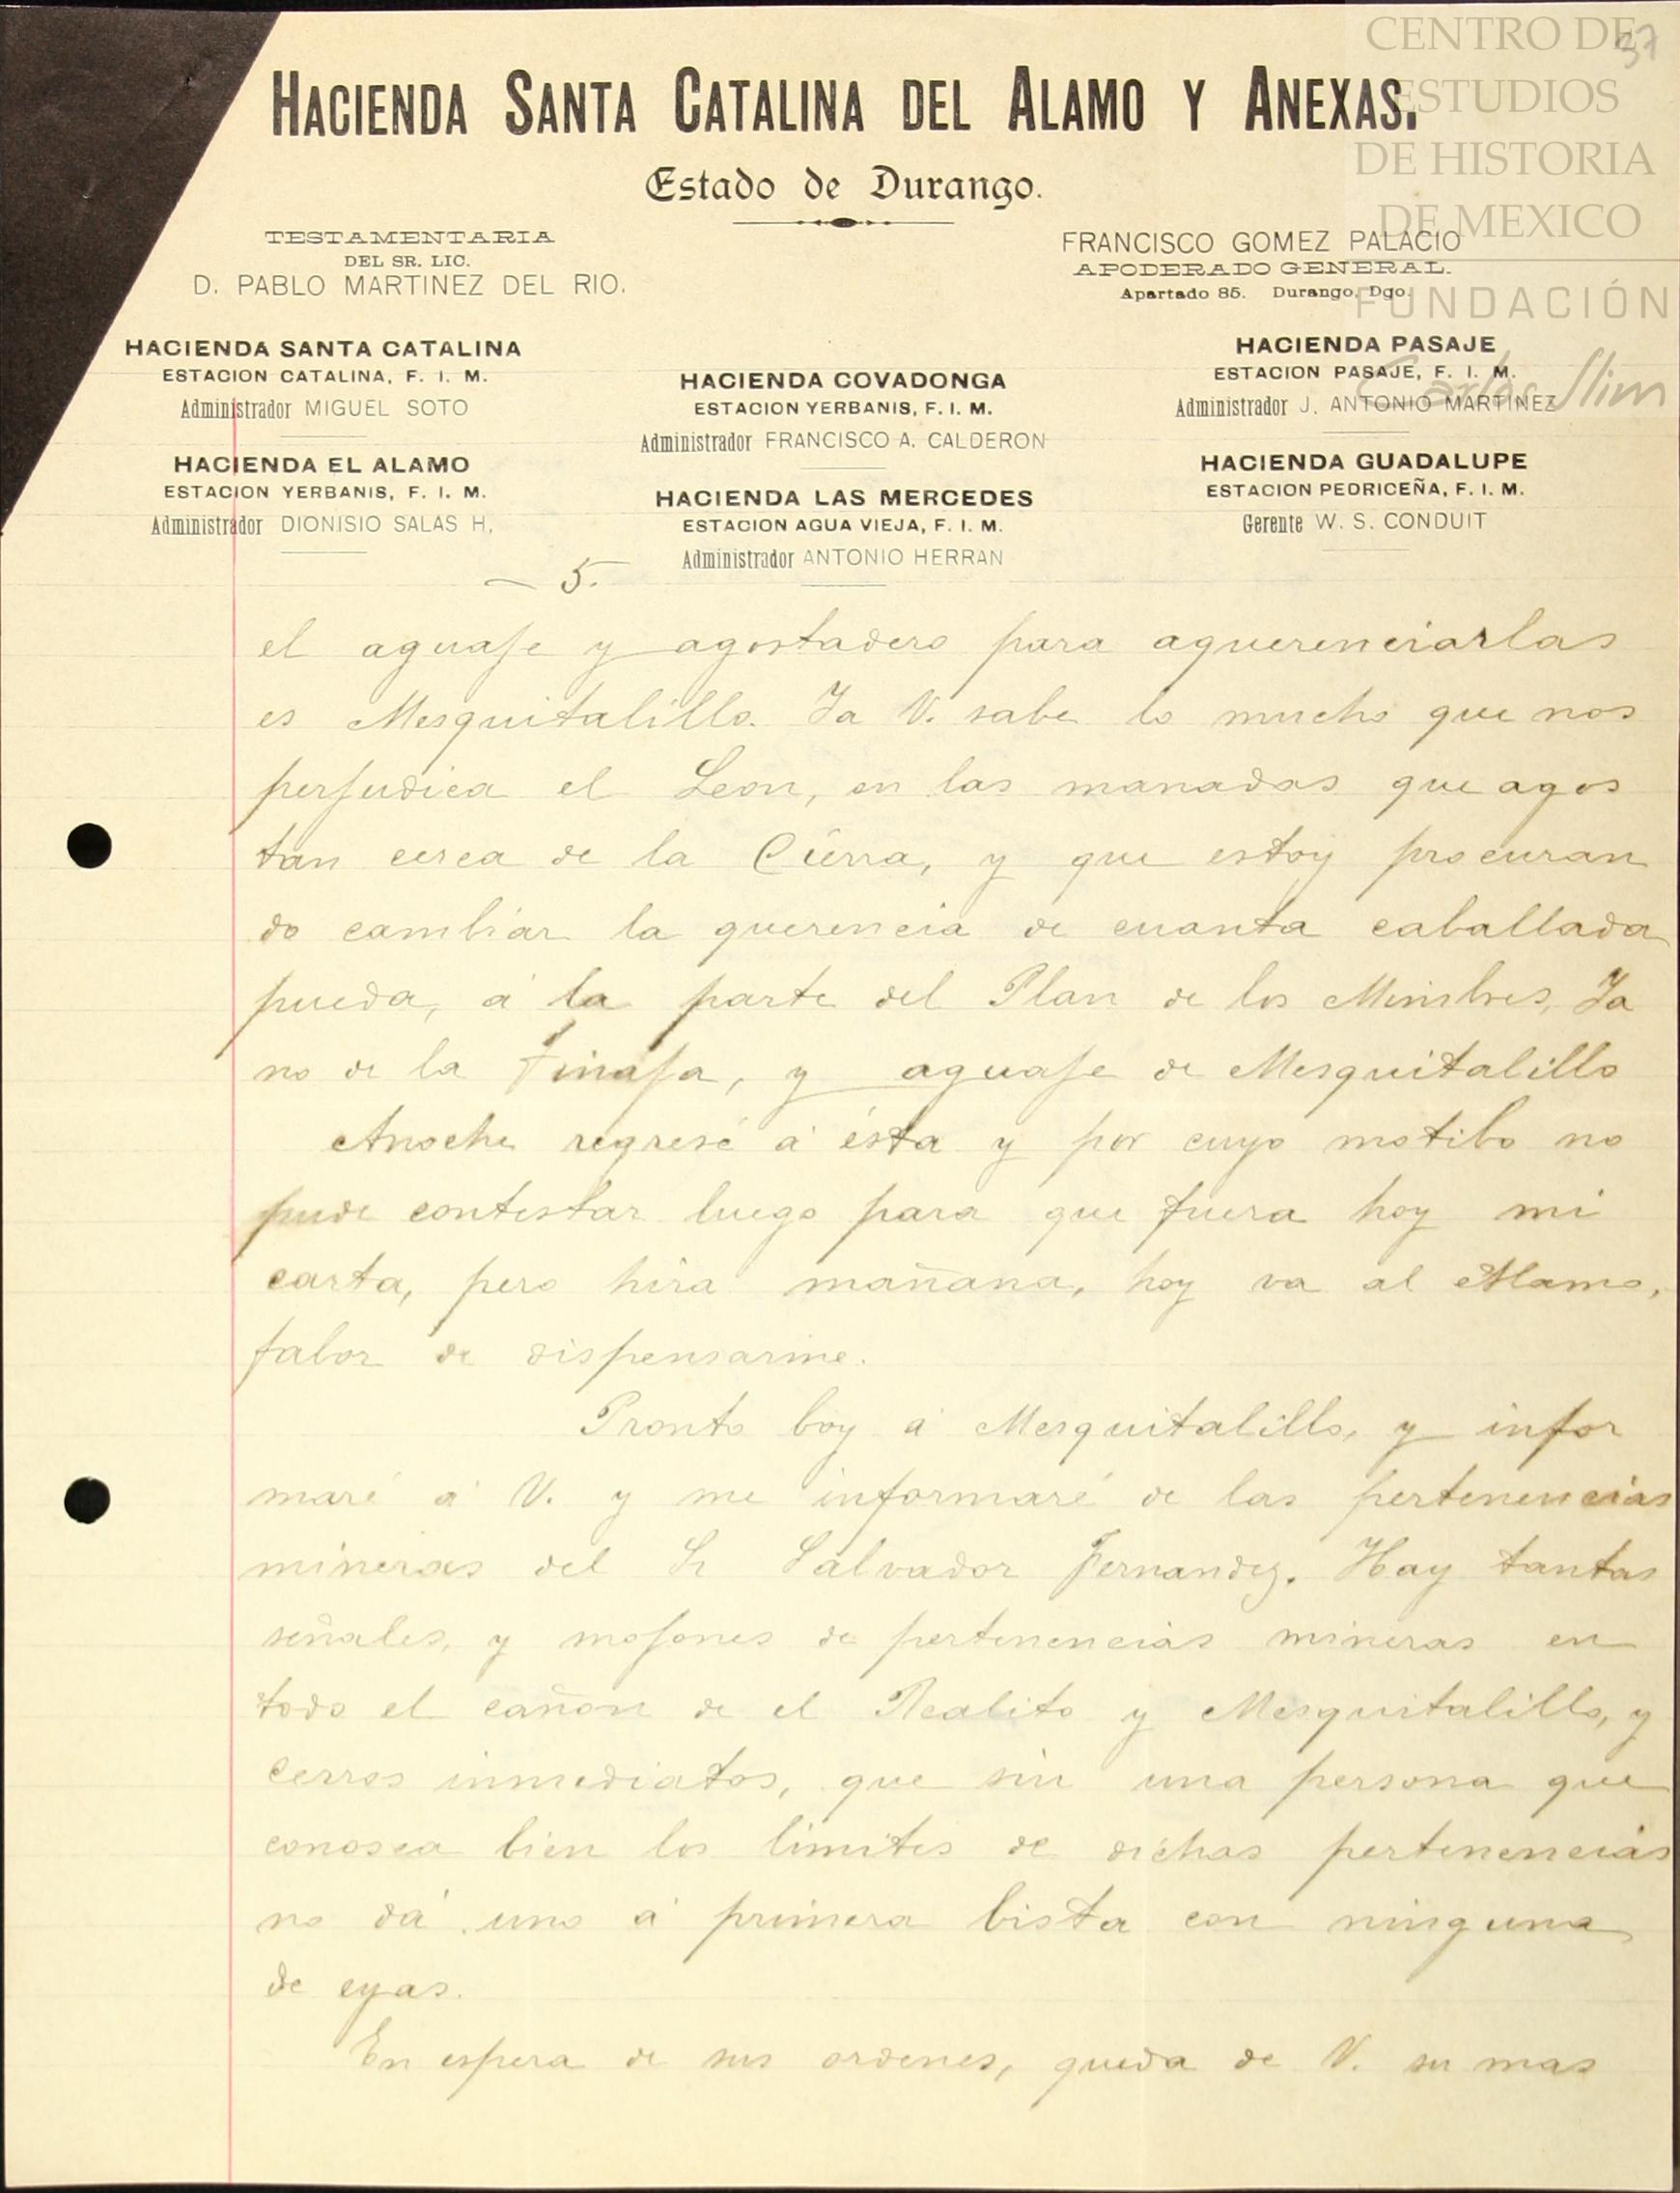 37
CENTRO DE
ESTUDIOS
DE HISTORIA
DE MEXICO
FUNDACIÓN
Carlos Slim
HACIENDA SANTA CATALINA DEL ALAMO Y ANEXAS.
Estado de Durango.
TESTAMENTARIA
DEL SR. LIC.
D. PABLO MARTINEZ DEL RIO.
FRANCISCO GOMEZ PALACIO
APODERADO GENERAL.
Apartado 85. Durango, Dgo.
HACIENDA SANTA CATALINA
ESTACION CATALINA, F. I. M.
Administrador MIGUEL SOTO
HACIENDA EL ALAMO
ESTACION YERBANIS, F. I. M.
Administrador DIONISIO SALAS H.
HACIENDA COVADONGA
ESTACION YERBANIS, F. I. M.
Administrador FRANCISCO A. CALDERON
HACIENDA LAS MERCEDES
ESTACION AGUA VIEJA, F. I. M.
Administrador ANTONIO HERRAN
HACIENDA PASAJE
ESTACION PASAJE, F. I. M.
Administrador J. ANTONIO MARTINEZ
HACIENDA GUADALUPE
ESTACION PEDRICEÑA, F. I. M.
Gerente W. S. CONDUIT
– 5. –
el aguaje y agostadero para aquerenciarlas
es Mesquitalillo. Ya V. sabe lo mucho que nos
perjudica el Leon, en las manadas que agos
tan cerca de la Cierra, y que estoy procuran
do cambiar la querencia de cuanta caballada
pueda, á la parte del Plan de los Mimbres, Ya
no de la Tinaja, y aguaje de Mesquitalillo
Anoche regresé á ésta y por cuyo motibo no
pude contestar luego para que fuera hoy mi
carta, pero hira mañana, hoy va al Alamo,
fabor de dispensarme.
Pronto boy á Mesquitalillo, y infor
maré á V. y me informaré de las pertenencias
mineras del Sr Salvador Fernandez. Hay tantas
señales, y mojones de pertenencias mineras en
todo el cañon de el Realito y Mesquitalillo, y
cerros inmediatos, que sin una persona que
conosca bien los limites de dichas pertenencias
no dá uno á primera bista con ninguna
de eyas.
En espera de sus ordenes, queda de V. su mas